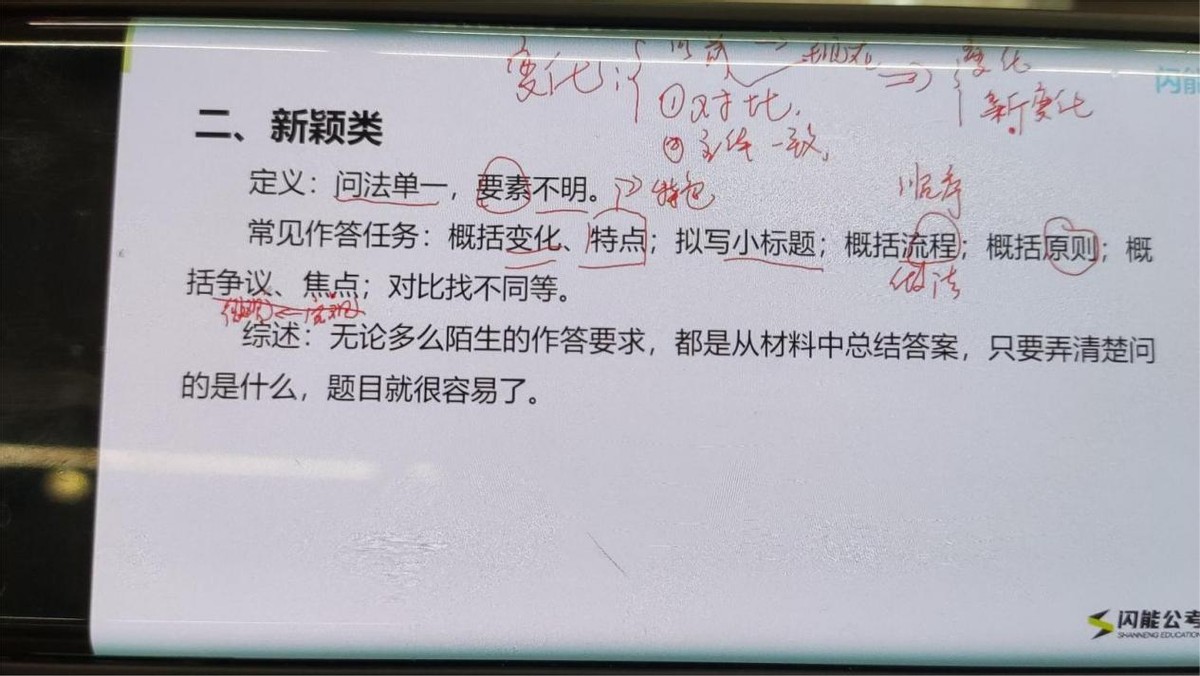 变化：以前 → 现在 ⇒ 变化
①对比， 新变化
②主体一致，
闪能
二、新颖类
定义：问法单一，要素不明。 特色 顺序
常见作答任务：概括变化、特点；拟写小标题；概括流程；概括原则；概
做法
括争议、焦点；对比找不同等。
综述：无论多么陌生的作答要求，都是从材料中总结答案，只要弄清楚问
的是什么，题目就很容易了。
闪能公考
SHANNENG EDUCATION